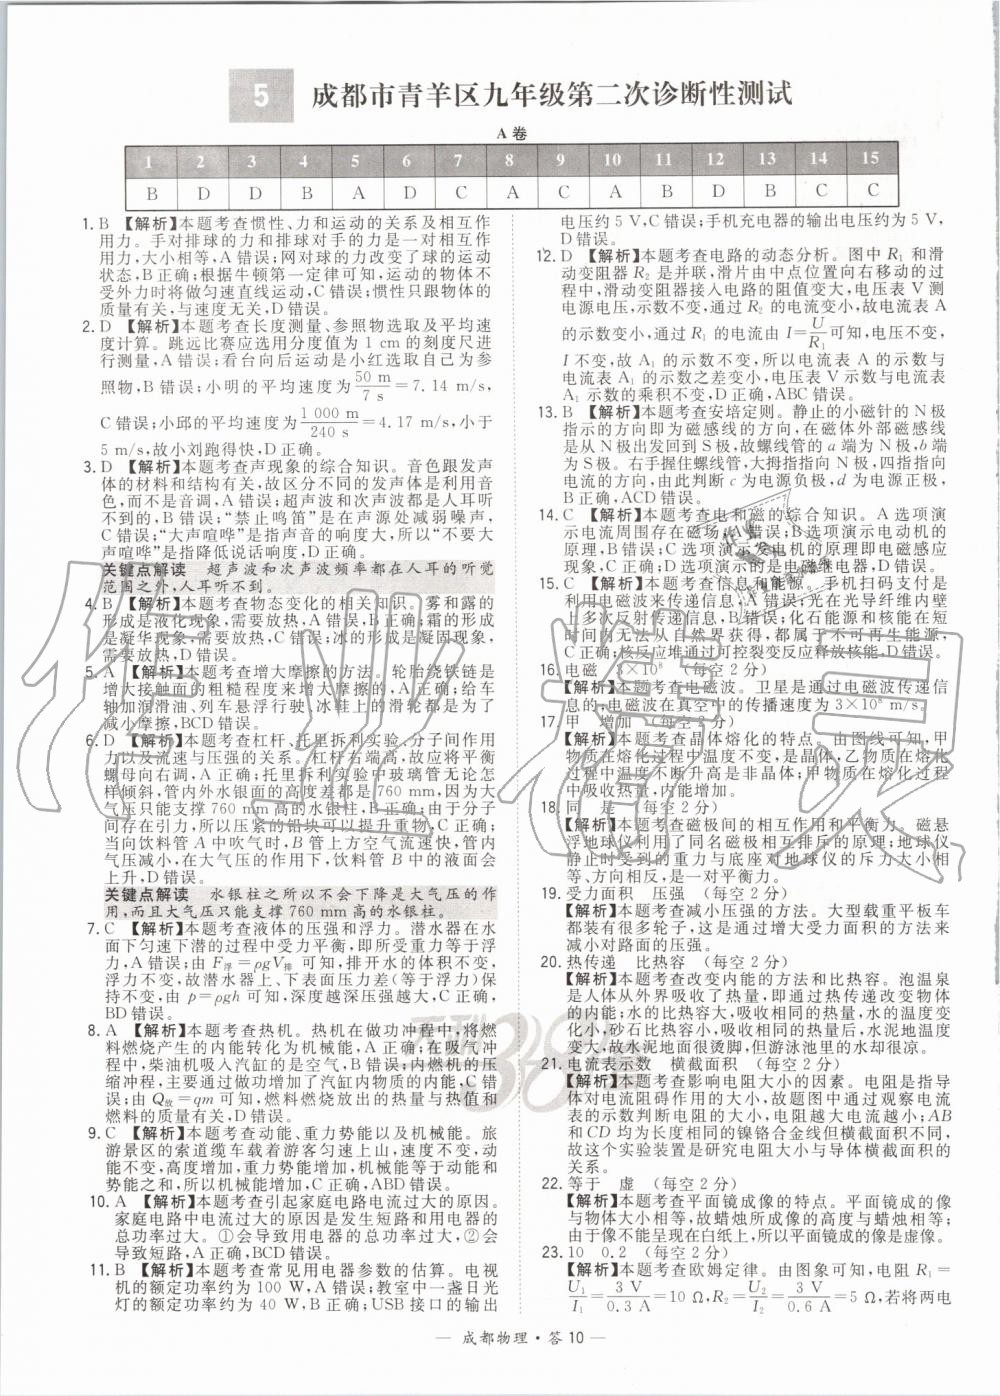 5
成都市青羊区九年级第二次诊断性测试
A 卷
1 2 3 4 5 6 7 8 9 10 11 12 13 14 15
B D D B A D C A C A B D B C C
1. B 【解析】本题考查惯性、力和运动的关系及相互作
用力。手对排球的力和排球对手的力是一对相互作
用力,大小相等,A 错误;网对球的力改变了球的运动
状态,B 正确;根据牛顿第一定律可知,运动的物体不
受外力时将做匀速直线运动,C 错误;惯性只跟物体的
质量有关,与速度无关,D 错误。
2. D 【解析】本题考查长度测量、参照物选取及平均速
度计算。跳远比赛应选用分度值为 1 cm 的刻度尺进
行测量,A 错误;看台向后运动是小红选取自己为参
照物,B 错误;小明的平均速度为50 m/7 s=7.14 m/s,
C 错误;小邱的平均速度为1 000 m/240 s=4.17 m/s,小于
5 m/s,故小刘跑得快,D 正确。
3. D 【解析】本题考查声现象的综合知识。音色跟发声
体的材料和结构有关,故区分不同的发声体是利用音
色,而不是音调,A 错误;超声波和次声波都是人耳听
不到的,B 错误;“禁止鸣笛”是在声源处减弱噪声,
C 错误;“大声喧哗”是指声音的响度大,所以“不要大
声喧哗”是指降低说话响度,D 正确。
关键点解读 超声波和次声波频率都在人耳的听觉
范围之外,人耳听不到。
4. B 【解析】本题考查物态变化的相关知识。雾和露的
形成是液化现象,需要放热,A 错误,B 正确;霜的形成
是凝华现象,需要放热,C 错误;冰的形成是凝固现象,
需要放热,D 错误。
5. A 【解析】本题考查增大摩擦的方法。轮胎绕铁链是
增大接触面的粗糙程度来增大摩擦的,A 正确;给车
轴加润滑油、列车悬浮行驶、冰鞋上的滑轮都是为了
减小摩擦,BCD 错误。
6. D 【解析】本题考查杠杆、托里拆利实验、分子间作用
力以及流速与压强的关系。杠杆右端高,故应将平衡
螺母向右调,A 正确;托里拆利实验中玻璃管无论怎
样倾斜,管内外水银面的高度差都是 760 mm,因为大
气压只能支撑 760 mm 高的水银柱,B 正确;由于分子
间存在引力,所以压紧的铅块可以提升重物,C 正确;
当向饮料管 A 中吹气时,B 管上方空气流速快,管内
气压减小,在大气压的作用下,饮料管 B 中的液面会
上升,D 错误。
关键点解读 水银柱之所以不会下降是大气压的作
用,而且大气压只能支撑 760 mm 高的水银柱。
7. C 【解析】本题考查液体的压强和浮力。潜水器在水
面下匀速下潜的过程中受力平衡,即所受重力等于浮
力,A 错误;由 F浮=ρgV排 可知,排开水的体积不变,
浮力不变,故潜水器上、下表面压力差(等于浮力)保
持不变,由 p=ρgh 可知,深度越深压强越大,C 正确,
BD 错误。
8. A 【解析】本题考查热机。热机在做功冲程中,将燃
料燃烧产生的内能转化为机械能,A 正确;在吸气冲
程中,柴油机吸入汽缸的是空气,B 错误;内燃机的压
缩冲程,主要通过做功增加了汽缸内物质的内能,C 错
误;由 Q放=qm 可知,燃料燃烧放出的热量与热值和
燃料的质量有关,D 错误。
9. C 【解析】本题考查动能、重力势能以及机械能。旅
游景区的索道缆车载着游客匀速上山,速度不变,动
能不变,高度增加,重力势能增加,机械能等于动能与
势能之和,所以机械能增加,C 正确,ABD 错误。
10. A 【解析】本题考查引起家庭电路电流过大的原因。
家庭电路中电流过大的原因是发生短路和用电器的
总功率过大。①会导致用电器的总功率过大,②会
导致短路,A 正确,BCD 错误。
11. B 【解析】本题考查常见用电器参数的估算。电视
机的额定功率约为 100 W,A 错误;教室中一盏日光
灯的额定功率约为 40 W,B 正确;USB 接口的输出
电压约为 5 V,C 错误;手机充电器的输出电压约为 5 V,
D 错误。
12. D 【解析】本题考查电路的动态分析。图中 R1 和滑
动变阻器 R2 是并联,滑片由中点位置向右移动的过
程中,滑动变阻器接入电路的阻值变大,电压表 V 测
电源电压,示数不变,通过 R2 的电流变小,故电流表 A
的示数变小,通过 R1 的电流由 I=U/R1可知,电压不变,
I 不变,故 A1 的示数不变,所以电流表 A 的示数与
电流表 A1 的示数之差变小,电压表 V 示数与电流表
A1 示数的乘积不变,D 正确,ABC 错误。
13. B 【解析】本题考查安培定则。静止的小磁针的 N 极
指示的方向即为磁感线的方向,在磁体外部磁感线
是从 N 极出发回到 S 极,故螺线管的 a 端为 N 极,b 端
为 S 极。右手握住螺线管,大拇指指向 N 极,四指指向
电流的方向,由此判断 c 为电源负极,d 为电源正极,
B 正确,ACD 错误。
14. C 【解析】本题考查电和磁的综合知识。A 选项演
示电流周围存在磁场,A 错误;B 选项演示电动机的
原理,B 错误;C 选项演示发电机的原理即电磁感应
现象,C 正确;D 选项演示的是电磁继电器,D 错误。
15. C 【解析】本题考查信息和能源。手机扫码支付是
利用电磁波来传递信息,A 错误;光在光导纤维内壁
上多次反射传递信息,B 错误;化石能源和核能在短
时间内无法从自然界获得,都属于不可再生能源,
C 正确;核反应堆通过可控制裂变反应释放核能,D 错误。
16. 电磁 3×10⁸ (每空 2 分)
【解析】本题考查电磁波。卫星是通过电磁波传递信
息的,电磁波在真空中的传播速度为 3×10⁸ m/s。
17. 甲 增加 (每空 2 分)
【解析】本题考查晶体熔化的特点。由图线可知,甲
物质在熔化过程中温度不变,是晶体;乙物质在熔化
过程中温度不断升高是非晶体;甲物质在熔化过程
中吸收热量,内能增加。
18. 同 是 (每空 2 分)
【解析】本题考查磁极间的相互作用和平衡力。磁悬
浮地球仪利用了同名磁极相互排斥的原理;地球仪
静止时受到的重力与底座对地球仪的斥力大小相
等、方向相反,是一对平衡力。
19. 受力面积 压强 (每空 2 分)
【解析】本题考查减小压强的方法。大型载重平板车
都装有很多轮子,这是通过增大受力面积的方法来
减小对路面的压强。
20. 热传递 比热容 (每空 2 分)
【解析】本题考查改变内能的方法和比热容。泡温泉
是人体从外界吸收了热量,即通过热传递改变物体
的内能;水的比热容大,吸收相同的热量,水的温度变
化小,砂石比热容小,吸收同样的热量后,水泥地温度
变化大,故水泥地面很烫脚,但游泳池里的水却很凉。
21. 电流表示数 横截面积 (每空 2 分)
【解析】本题考查影响电阻大小的因素。电阻是指导
体对电流阻碍作用的大小,故图中通过观察电流
表的示数判断电阻的大小,电阻越大电流越小;AB
和 CD 均为长度相同的镍铬合金线但横截面积不同,
故这个实验装置是研究电阻大小与导体横截面积的
关系。
22. 等于 虚 (每空 2 分)
【解析】本题考查平面镜成像的特点。平面镜成的像
与物体大小相等,故蜡烛所成像的高度与蜡烛相等;
由于像不能呈现在白纸上,所以平面镜成的像是虚像。
23. 10 0.2 (每空 2 分)
【解析】本题考查欧姆定律。由图象可知,电阻 R1=
U1/I1=3 V/0.3 A=10 Ω,电阻 R2=U2/I2=3 V/0.6 A=5 Ω,若将两电
— 成都物理·答 10 —
作业精灵